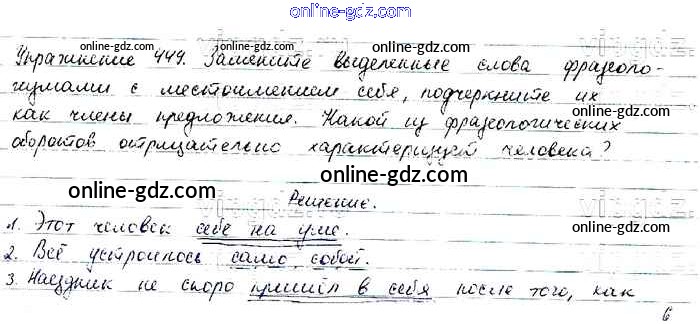 online-gdz.com
Упражнение 449. Замените выделенные слова фразеоло-
гизмами с местоимением себя, подчеркните их
как члены предложения. Какой из фразеологических
оборотов отрицательно характеризует человека?
online-gdz.com online-gdz.com
online-gdz.com
Решение.
1. Этот человек себе на уме.
2. Всё устроилось само собой.
3. Наездник не скоро пришёл в себя после того, как
online-gdz.com online-gdz.com
6